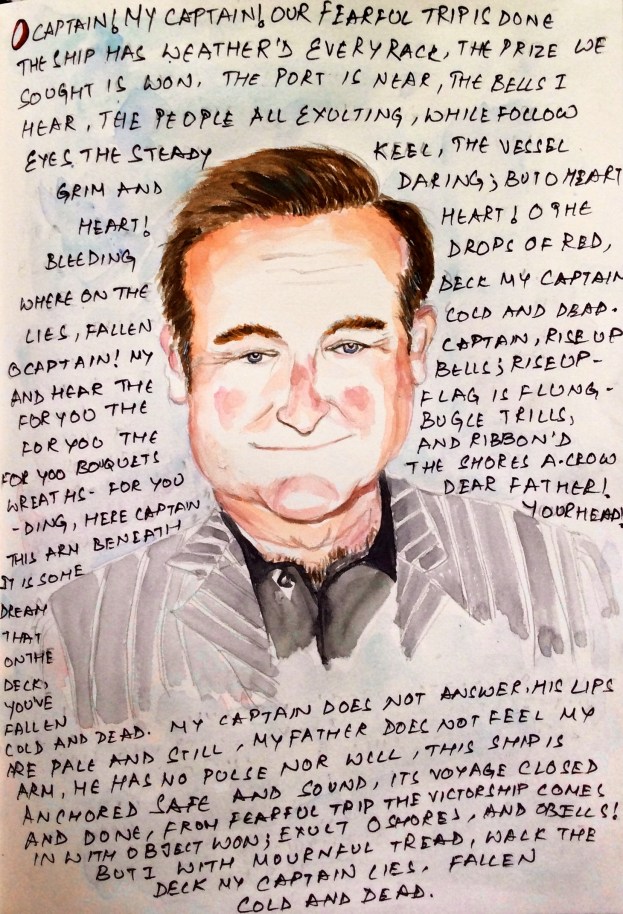 O CAPTAIN! MY CAPTAIN! OUR FEARFUL TRIP IS DONE
THE SHIP HAS WEATHER'D EVERY RACK, THE PRIZE WE
SOUGHT IS WON. THE PORT IS NEAR, THE BELLS I
HEAR, THE PEOPLE ALL EXULTING, WHILE FOLLOW
EYES THE STEADY KEEL, THE VESSEL
GRIM AND DARING; BUT O HEART
HEART! HEART! O THE
BLEEDING DROPS OF RED,
WHERE ON THE DECK MY CAPTAIN
LIES, FALLEN COLD AND DEAD.
O CAPTAIN! MY CAPTAIN, RISE UP
AND HEAR THE BELLS; RISE UP-
FOR YOU THE FLAG IS FLUNG-
FOR YOU THE BUGLE TRILLS;
FOR YOO BOUQUETS AND RIBBON'D
WREATHS- FOR YOU THE SHORES A-CROW
-DING, HERE CAPTAIN DEAR FATHER!
THIS ARM BENEATH YOUR HEAD!
IT IS SOME
DREAM
THAT
ON THE
DECK,
YOU'VE
FALLEN
COLD AND DEAD. MY CAPTAIN DOES NOT ANSWER, HIS LIPS
ARE PALE AND STILL, MY FATHER DOES NOT FEEL MY
ARM, HE HAS NO PULSE NOR WILL, THIS SHIP IS
ANCHORED SAFE AND SOUND, ITS VOYAGE CLOSED
AND DONE, FROM FEARFUL TRIP THE VICTORSHIP COMES
IN WITH OBJECT WON; EXULT O SHORES, AND O BELLS!
BUT I WITH MOURNFUL TREAD, WALK THE
DECK MY CAPTAIN LIES, FALLEN
COLD AND DEAD.